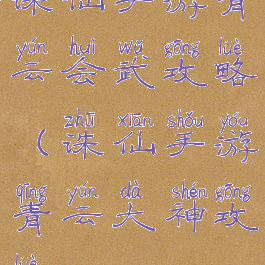 诛仙手游青
yún huì wǔ gōng lüè
云会武攻略
zhū xiān shǒu yóu
（诛仙手游
qīng yún dà shén gōng
青云大神攻
lüè